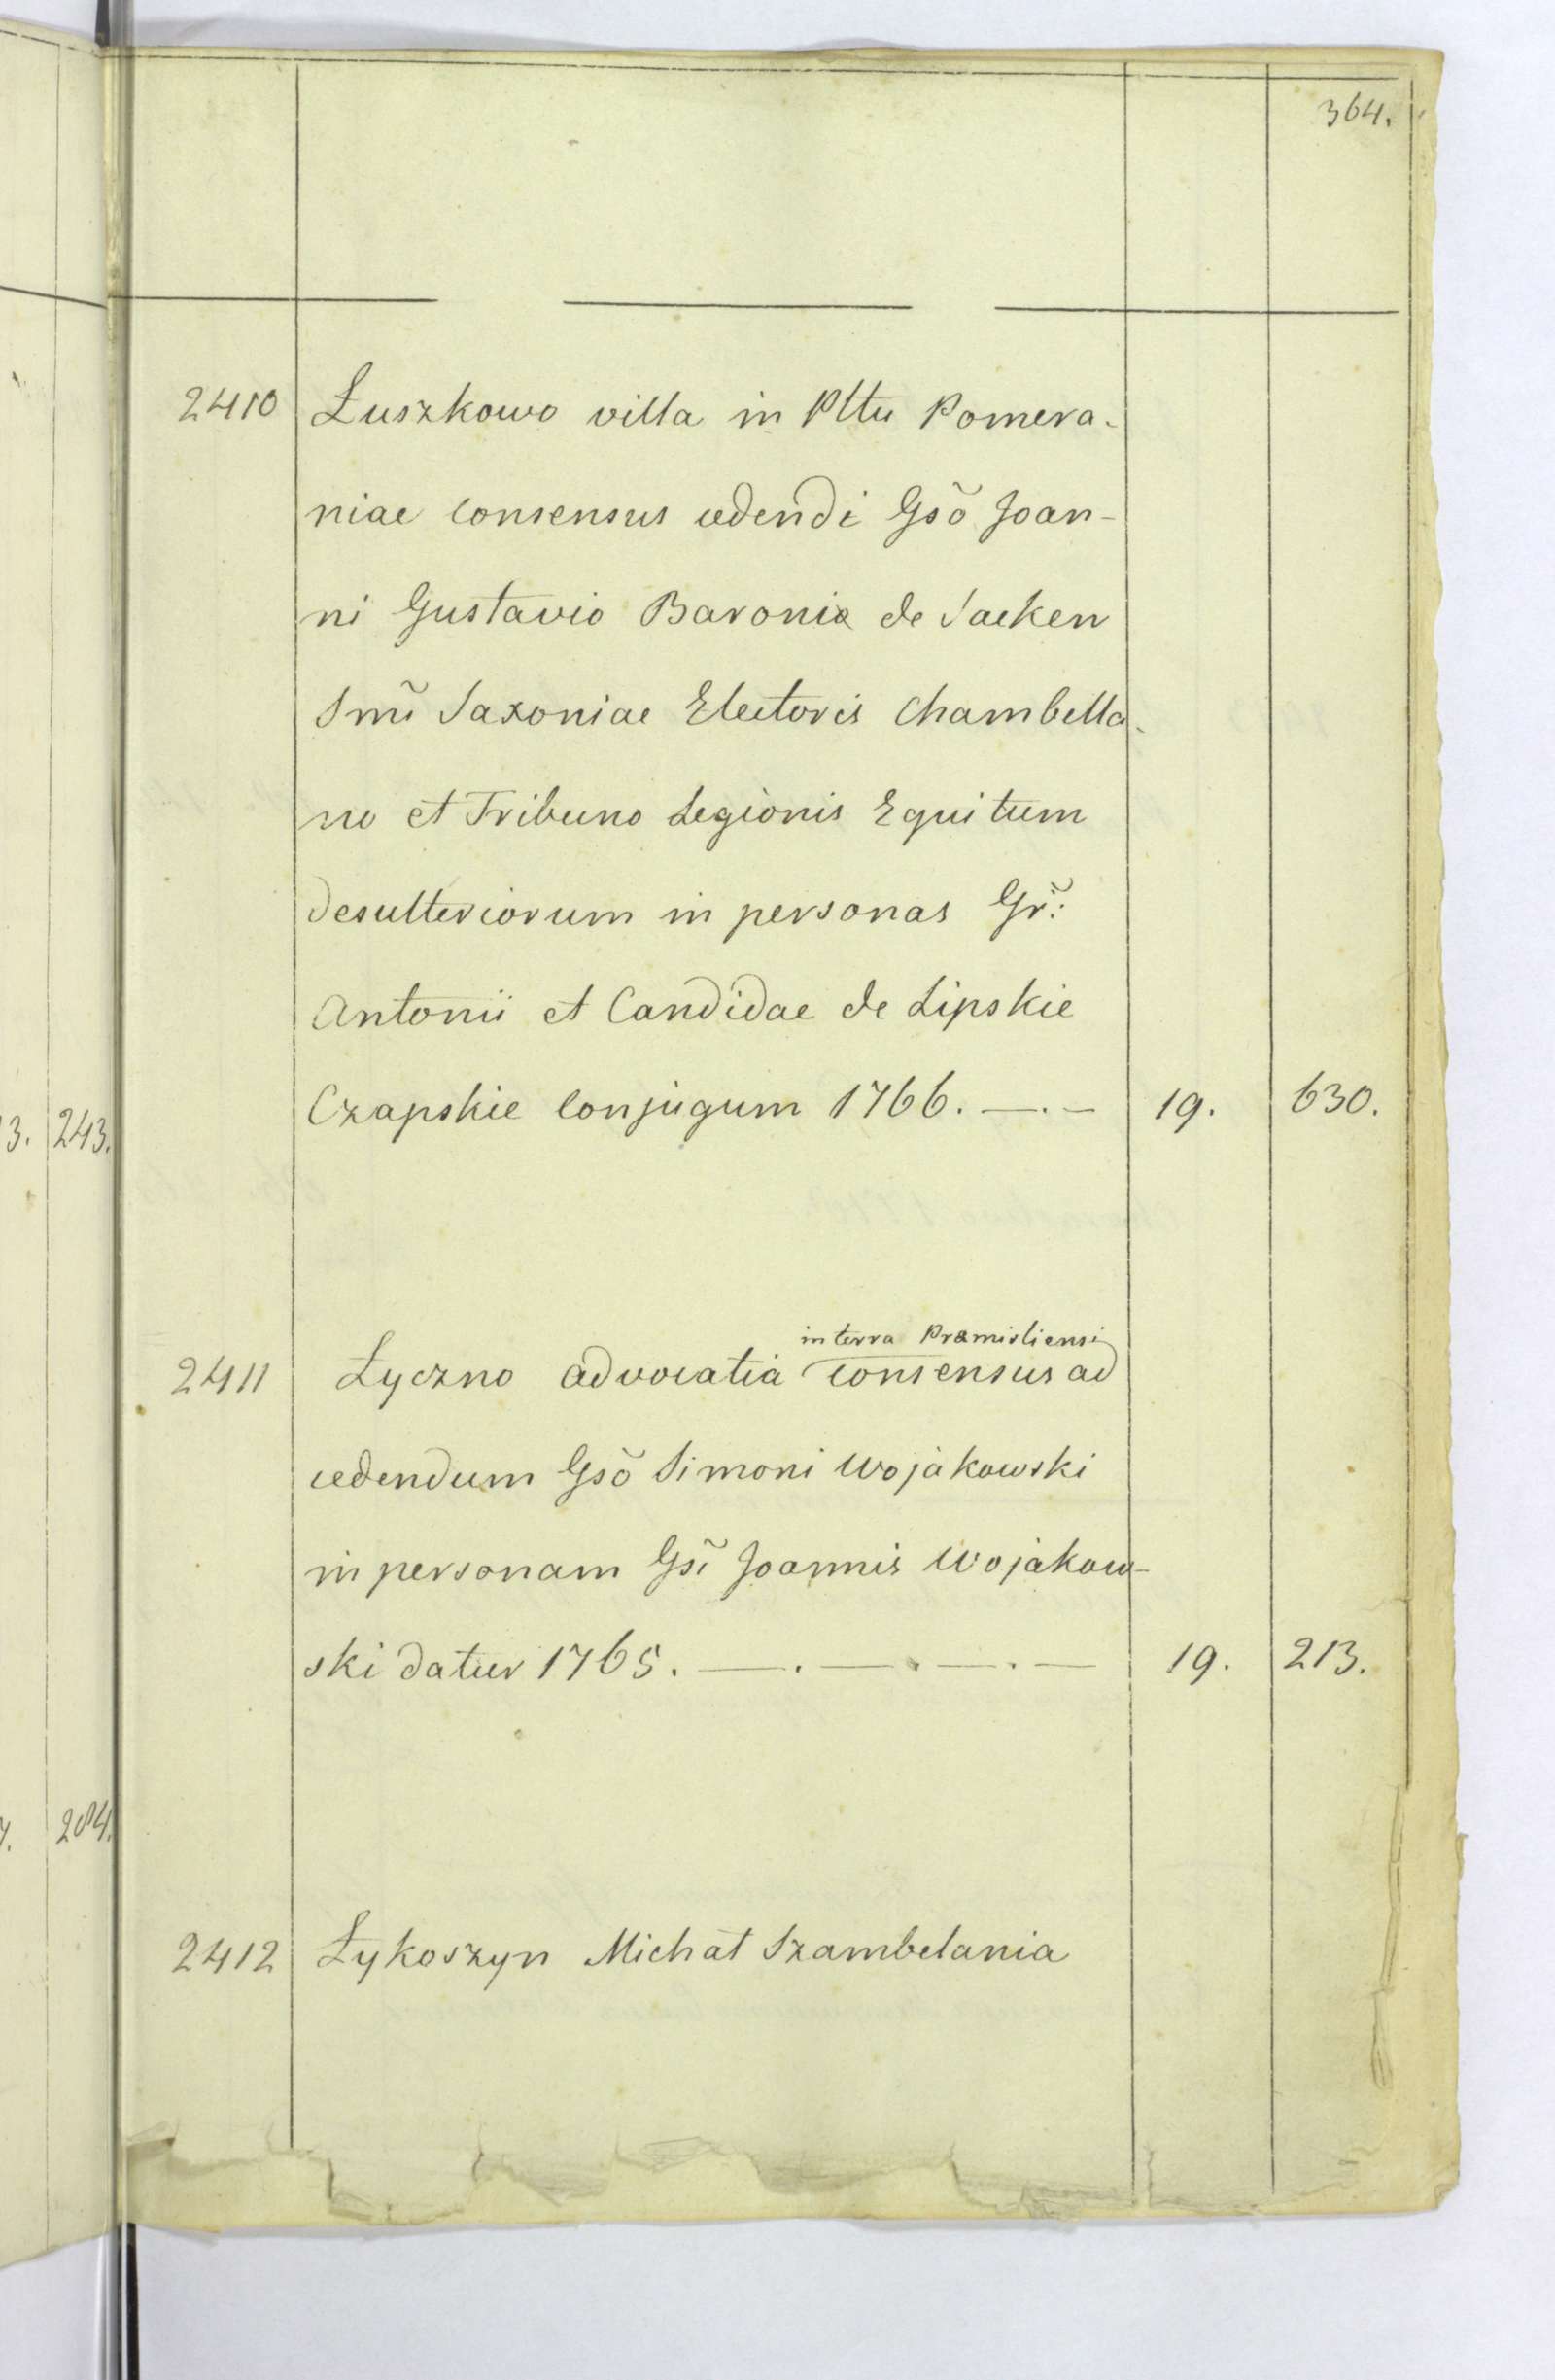 364.
2410 Łuszkowo villa in Pttu Pomera-
niae consensus cedendi Gsõ Joan-
ni Gustavio Baronia de Sacken
Smĩ Saxoniae Electoris Chambella-
no et Tribuno Legionis Equitum
desulteriorum in personas Gr̃:
Antonii et Candidae de Lipskie
Czapskie conjugum 1766. —.— 19. 630.
3. 243.
in terra Præmisliensi
2411 Łyczno advocatia consensus ad
cedendum Gsõ Simoni Wojakowski
in personam Gsĩ Joannis Wojakow-
ski datur 1765. —.—.—.— 19. 213.
204.
2412 Łykoszyn Michał Szambelania